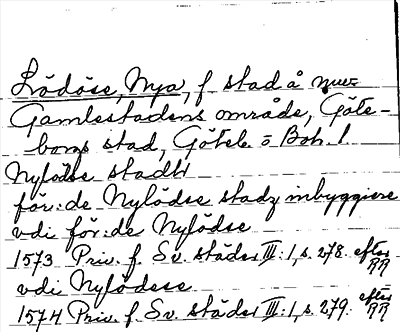 Lödöse, Nya, f stad å nuv.
Gamlestadens område, Göte-
borgs stad, Götebe ō Boh. l
Nylödse stadtt
för:de Nylödse stadz inbyggiere
vdi för:de Nylödse
1573 Priv. f. Sv. städer III:1, s. 278. efter RR
vdi Nylödese
1574 Priv. f. Sv. städer III:1, s. 279. efter RR